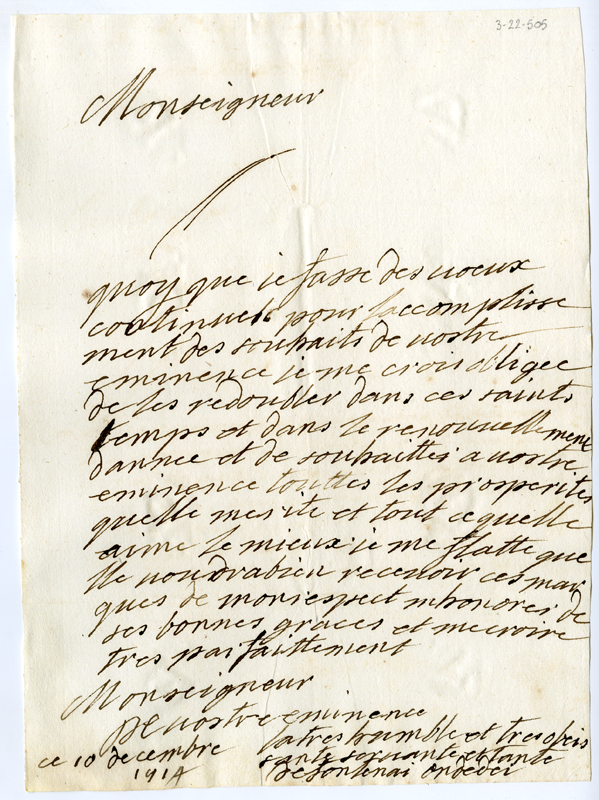 3-22-505
Monseigneur
quoy que ie fasse des uoeux
continuels pour laccomplisse
ment des souhaits de uostre
eminence ie me crois obligee
de les redoubler dans ces saints
temps et dans le renouuellement
dannee et de souhaitter a uostre
eminence touttes les prosperites
quelle merite et tout cequelle
aime le mieux ie me flatte que
lle uoudrabien receuoir ces mar
ques de monrespect mhonorer de
ses bonnes graces et mecroire
tres parfaittement
Monseigneur
De uostre eminence
latres humble et tres obeis
sante seruante et tante
ce 10 decembre
1714